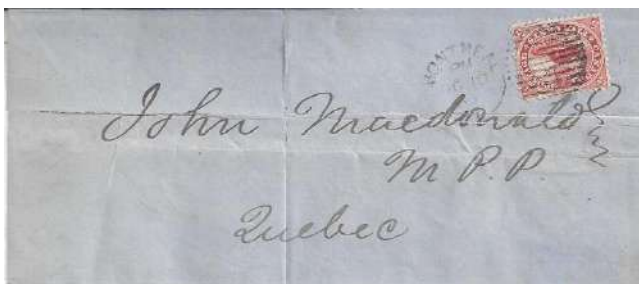 MONTREAL
John Macdonald
M.P.P.
Quebec